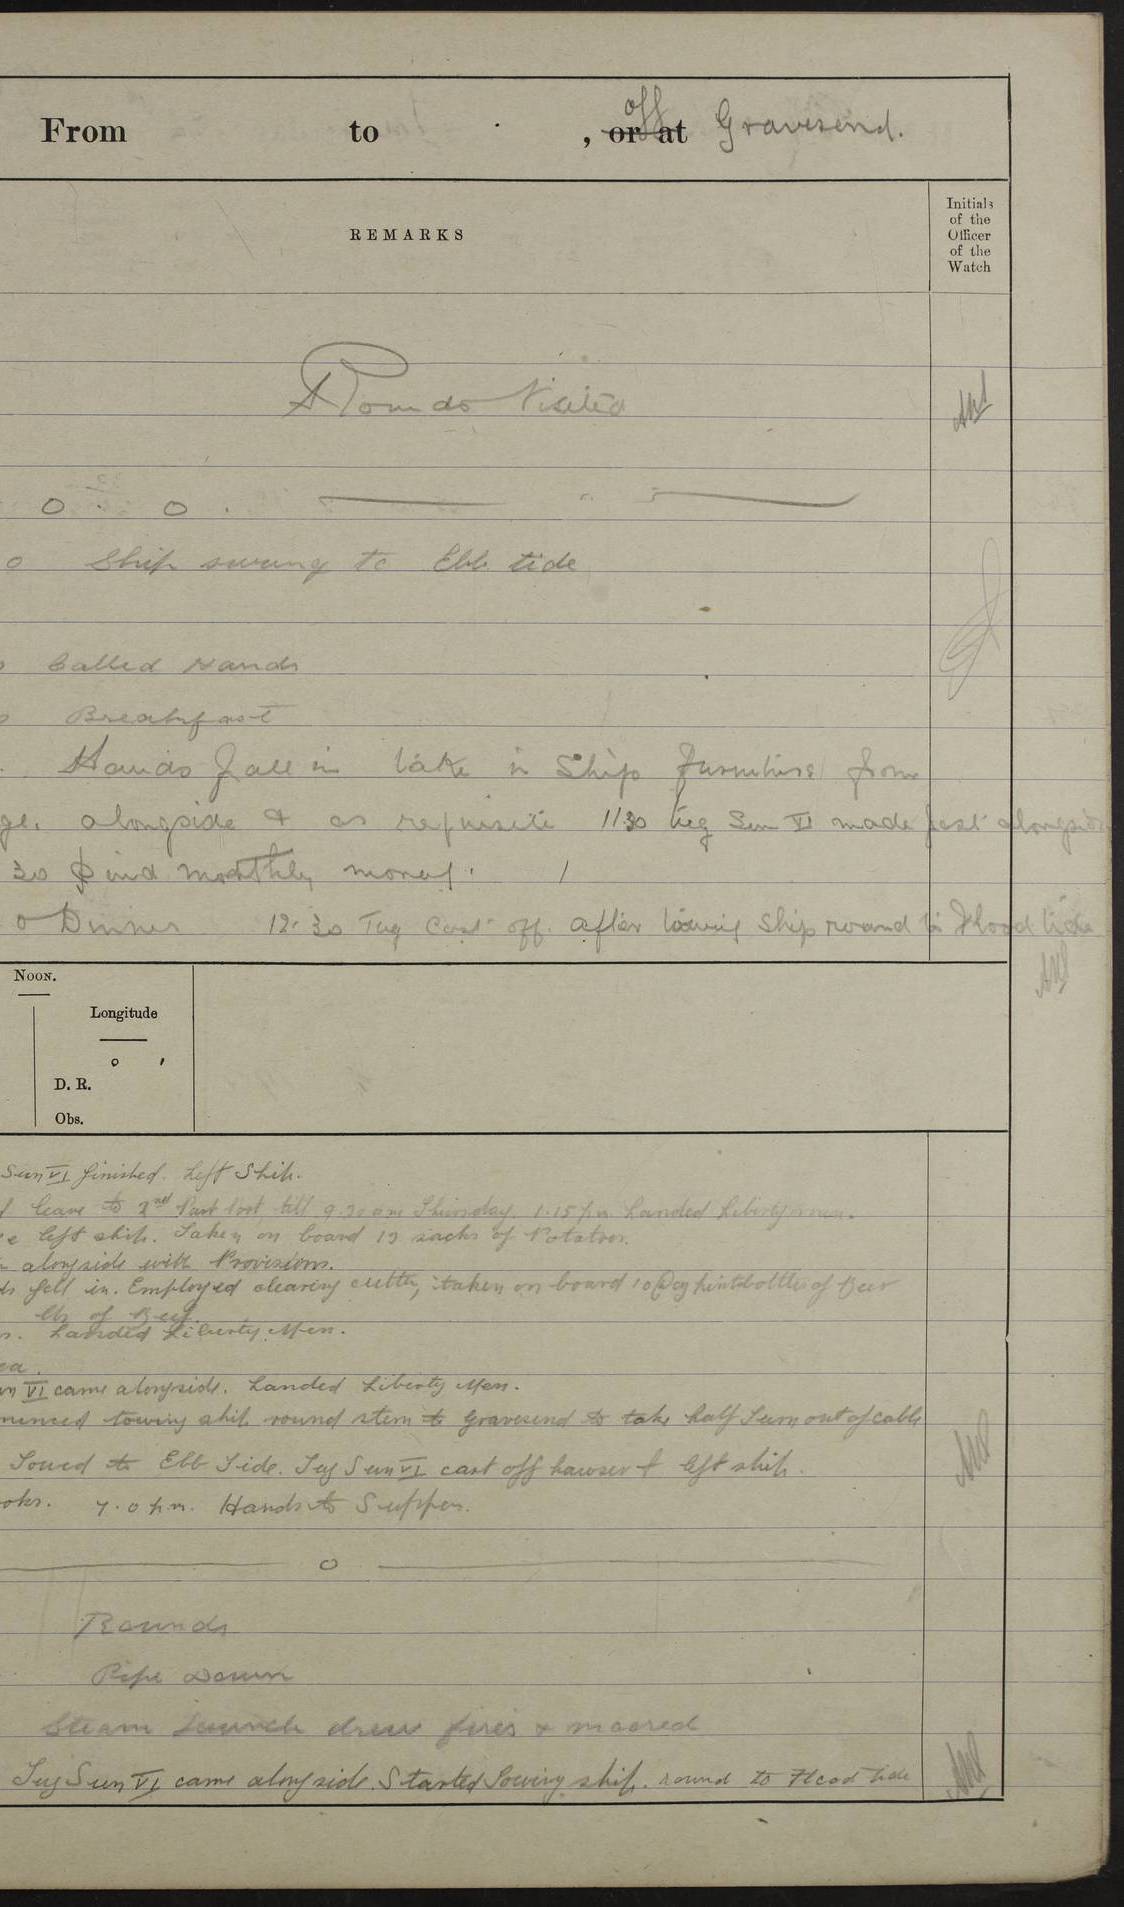 From to , or at off Gravesend.
REMARKS
Initials
of the
Officer
of the
Watch
Rounds Visited
o . o .
o Ship swung to Ebb tide
o Called Hands
o Breakfast
Hands fall in take in Ships furniture from
ge. alongside & as requisite 11 30 tug Sun VI made fast alongside
30 Paid monthly money.
o Dinner 12.30 Tug Cast off. after towing Ship round to Flood tide
Noon.
Longitude
o '
D. R.
Obs.
Sun VI finished. Left Ship.
leave to 2nd Part Port till 9.30am Thursday. 1.15 p.m. Landed Liberty men.
e left ship. Taken on board 12 sacks of Potatoes.
alongside with Provisions.
ds fell in. Employed clearing cutter, taken on board 10 pint bottles of Beer
lbs of Beef.
s. Landed Liberty Men.
ea.
un VI came alongside. Landed Liberty Men.
menced towing ship round stem to Gravesend to take half Turn out of cable
Towed to Ebb Tide. Tug Sun VI cast off hawser & left ship.
oks. 7.0 p.m. Hands to Supper.
o
Rounds
Pipe Down
Steam Launch drew fires & moored
Tug Sun VI came alongside. Started Towing ship. round to Flood tide